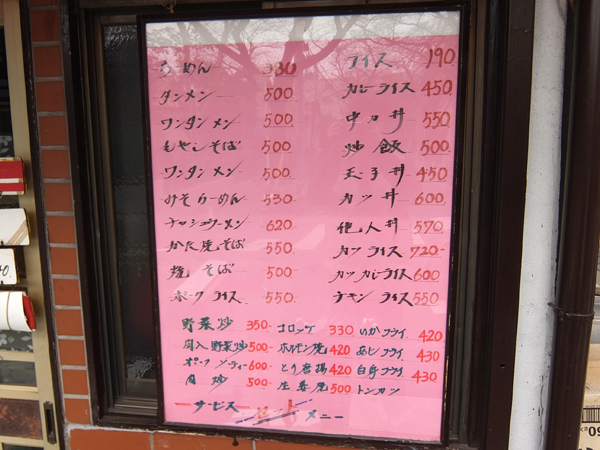 らーめん 380
タンメン 500
ワンタンメン 500
もやしそば 500
ワンタンメン 500
みそらーめん 530
チャシューメン 620
かた焼そば 550
焼そば 500
ポークライス 550
ライス 190
カレーライス 450
中カ丼 550
炒飯 500
玉子丼 450
カツ丼 600
他人丼 570
カツライス 720-
カツカレーライス 600
チキンライス 550
野菜炒 350- コロッケ 330 いかフライ 420
肉入野菜炒 500- ホルモン焼 420 あじフライ 430
ポーク 600- とり唐揚 420 白身フライ 430
肉炒 500- 生姜焼 500 トンカツ
サービス メニー